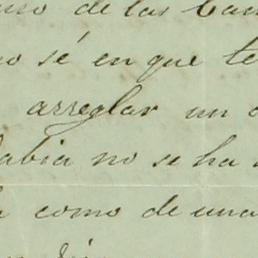 de las
no sé en que te
arreglar un
abia no se ha
como de una